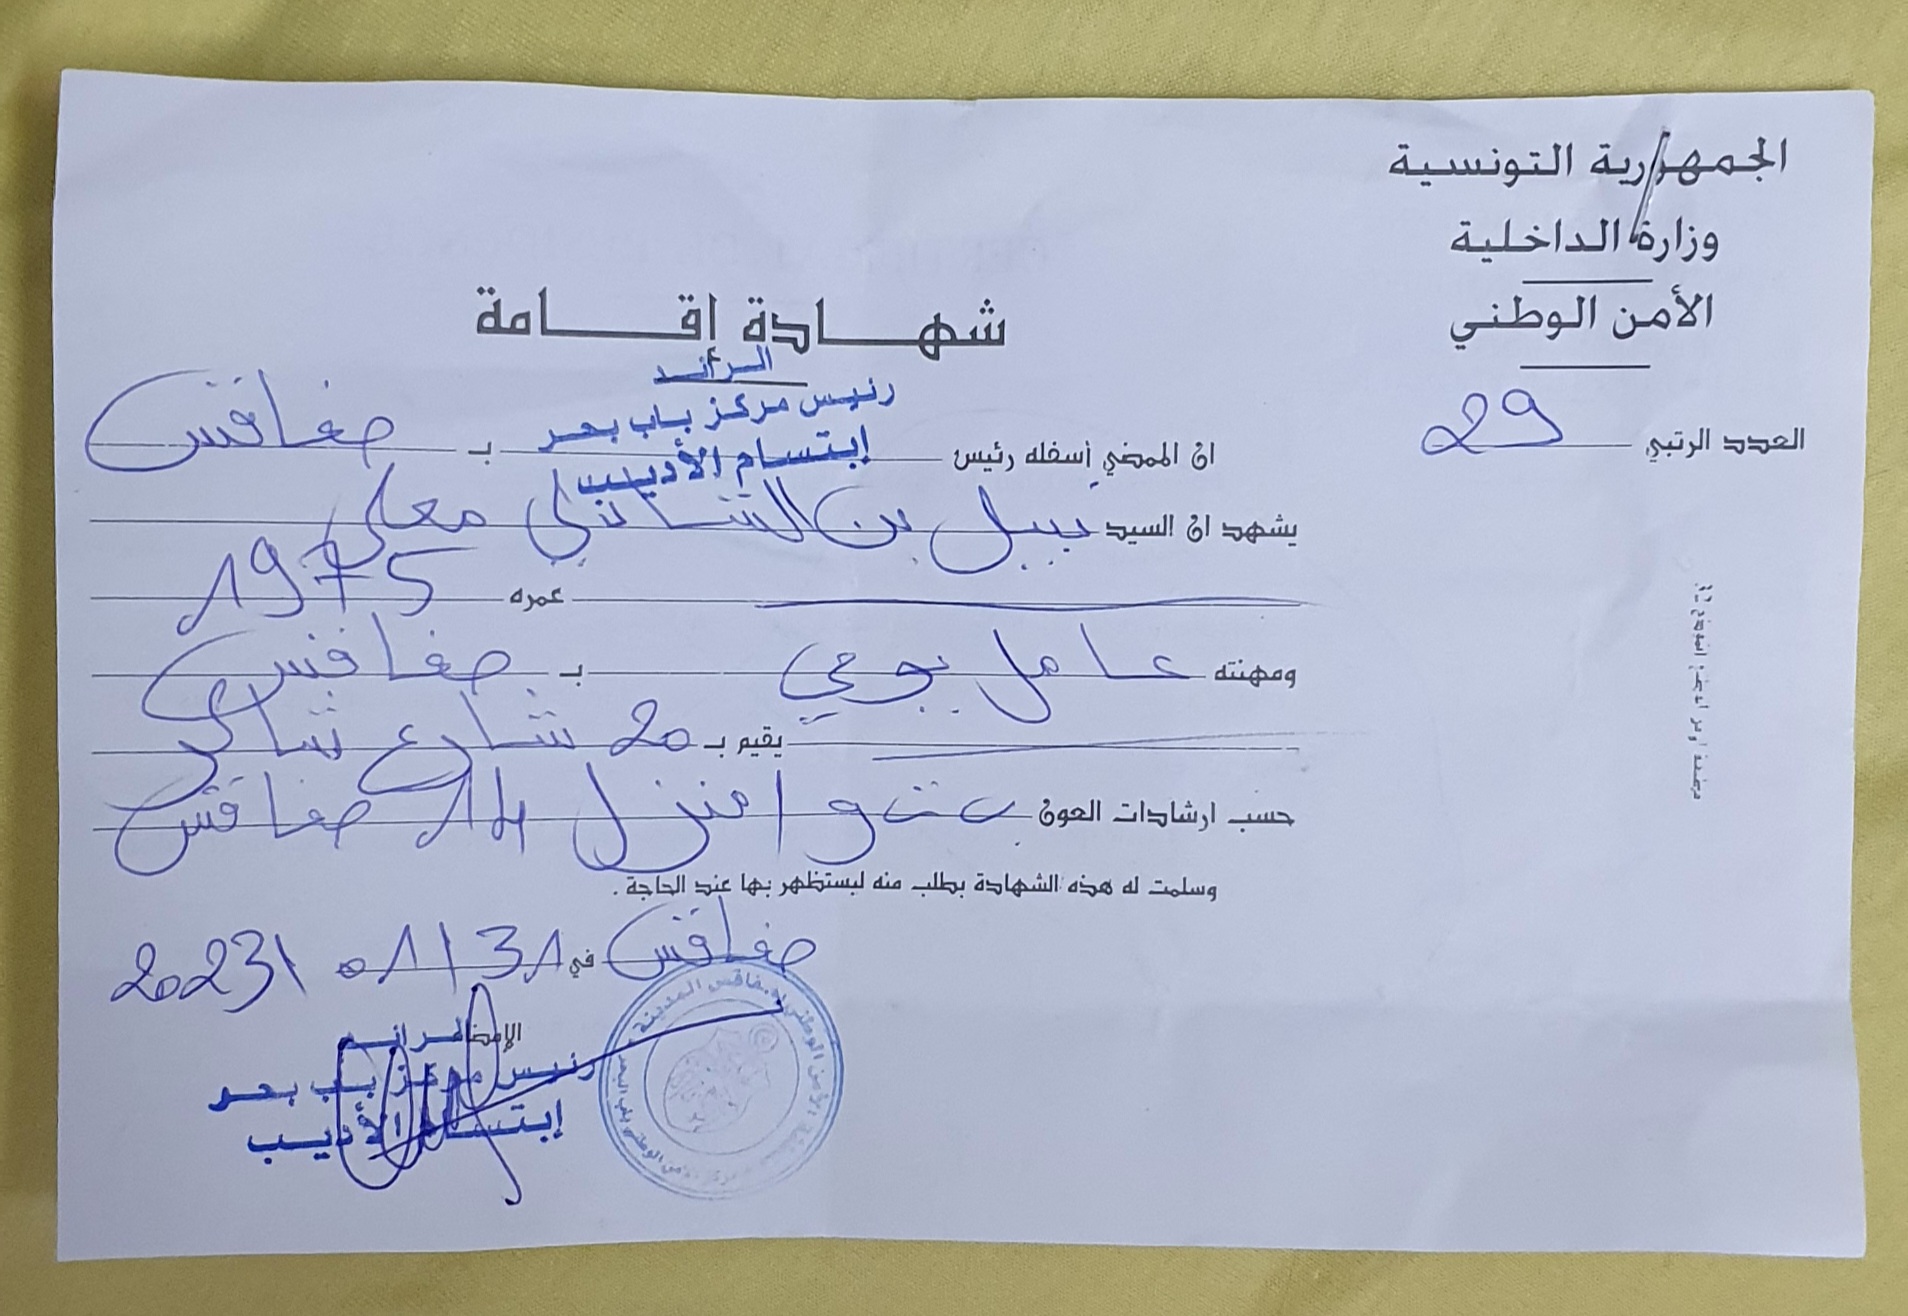 الجمهورية التونسية
وزارة الداخلية
الأمن الوطني
العدد الرتبي 29
شهادة إقامة
الرائد
رئيس مركز باب بحر
إبتسام الأديب
ان الممضي أسفله رئيس بـ صفاقس
يشهد ان السيد نبيل بن الشاذلي معلى
عمره 1975
ومهنته عامل يومي بـ صفاقس
يقيم بـ 20 شارع شاكر
حسب ارشادات العون ب ت و منزل 14 صفاقس
وسلمت له هذه الشهادة بطلب منه ليستظهر بها عند الحاجة .
صفاقس في 31/01/2023
الإمضاء
رئيس مركز باب بحر
إبتسام الأديب